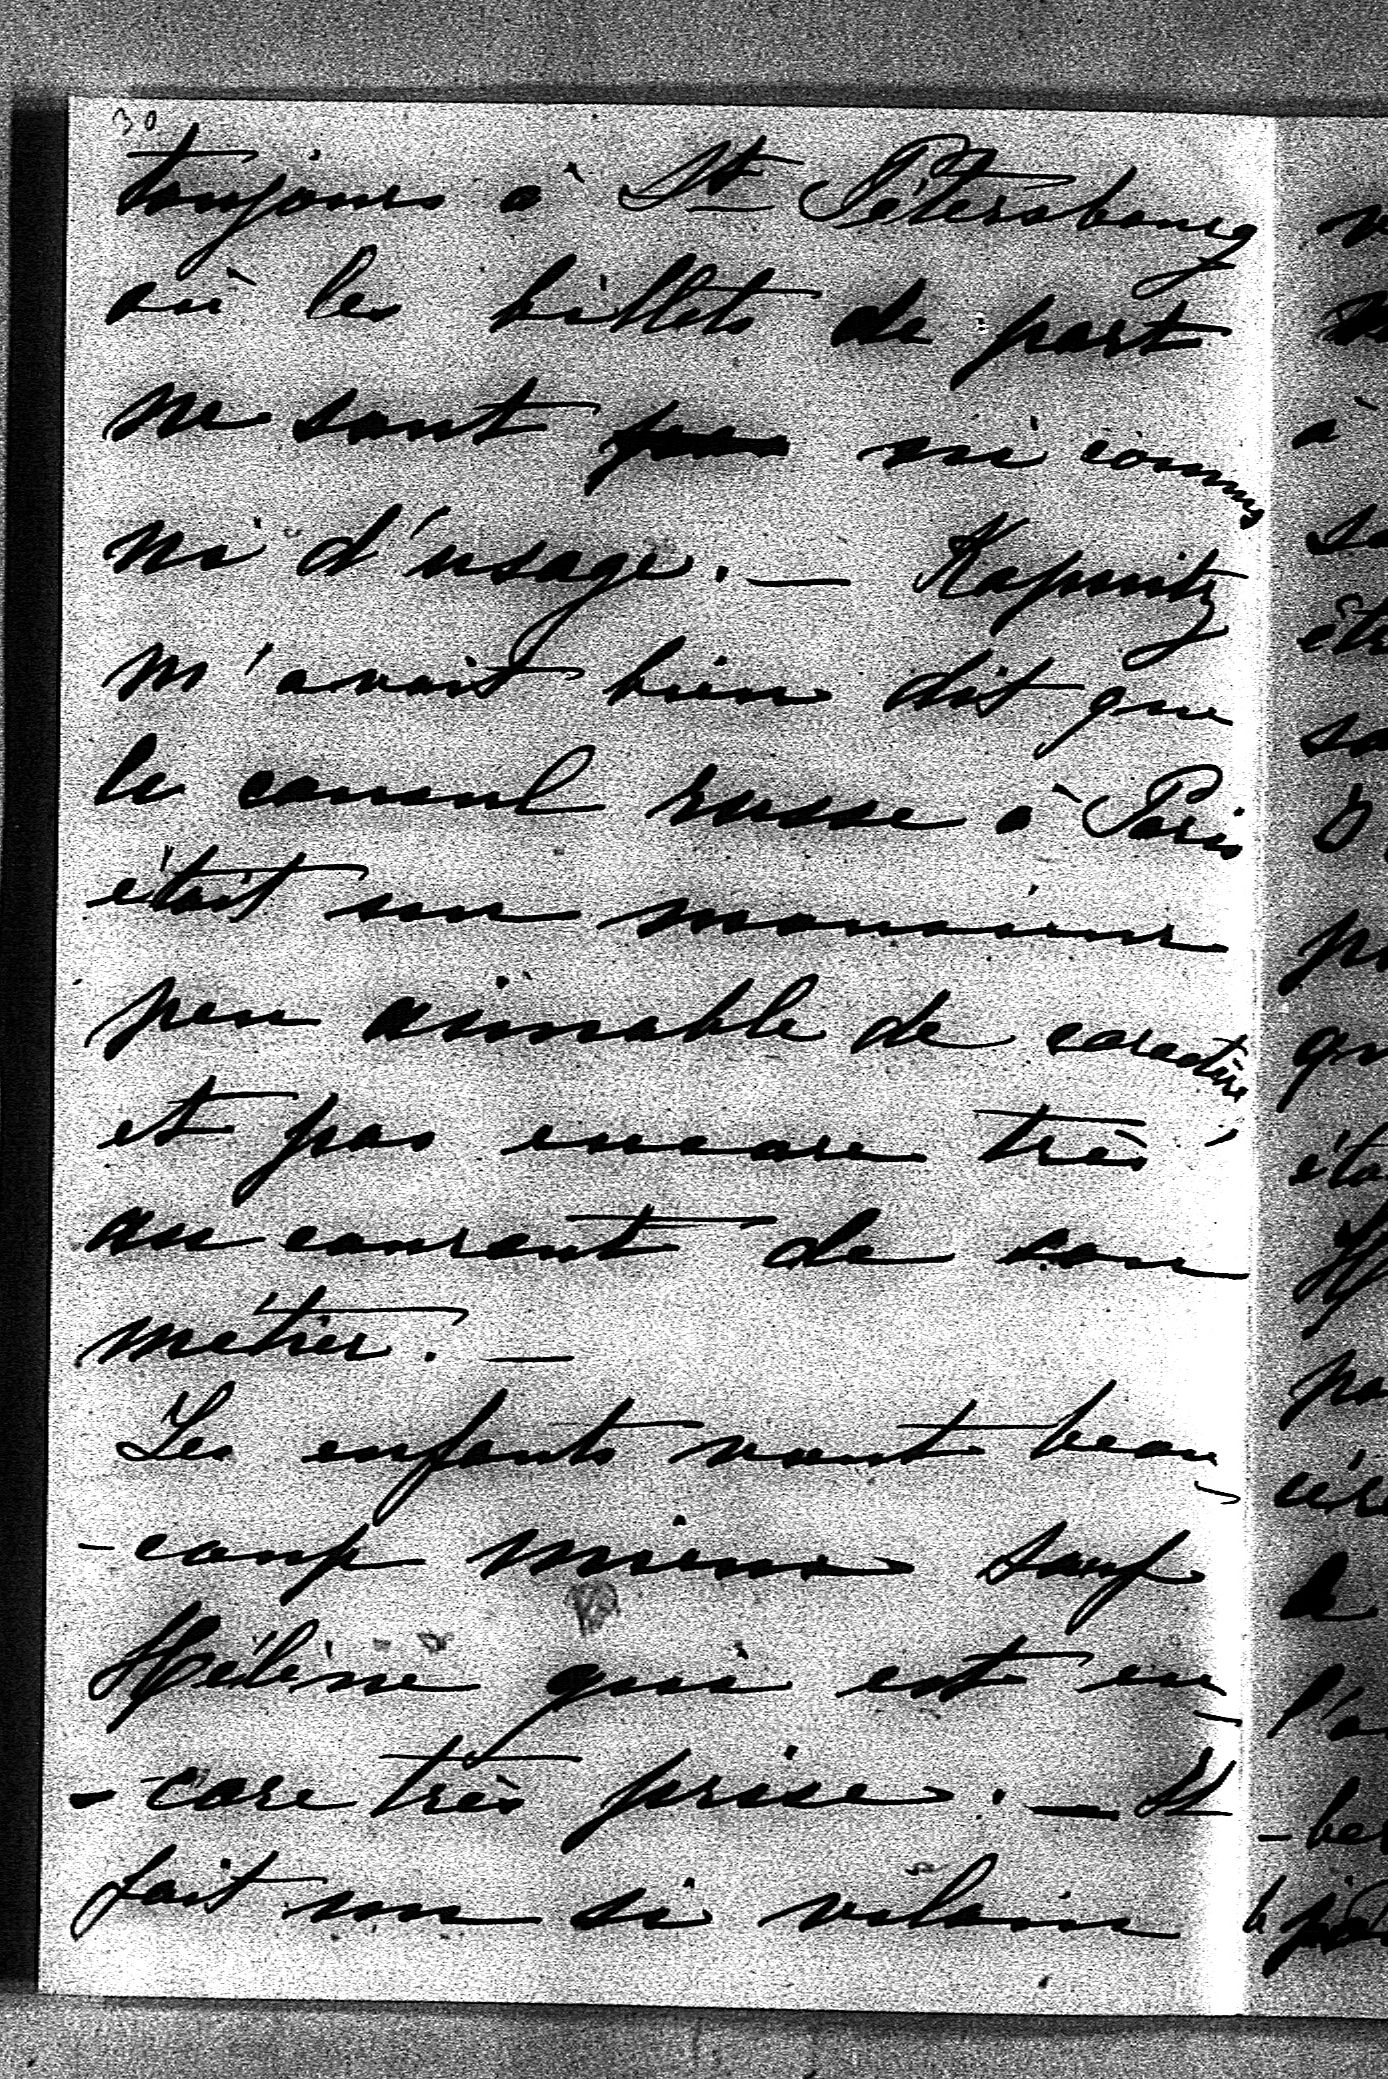 30
toujours à St Pétersbourg
où les billets de part
ne sont pas ni connus
ni d'usage. — Kapnitz
m'avait bien dit que
le consul russe à Paris
était un monsieur
peu aimable de caractère
et pas encore très
au courant de son
métier. —
Les enfants vont beau-
-coup mieux sauf
Hélène qui est en-
-core très prise. — Il
fait un si vilain